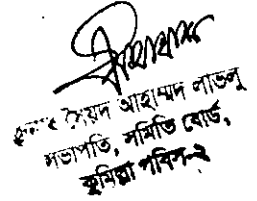 সৈয়দ আহাম্মদ লাভলু
সভাপতি, সমিতি বোর্ড,
কুমিল্লা পবিস-২